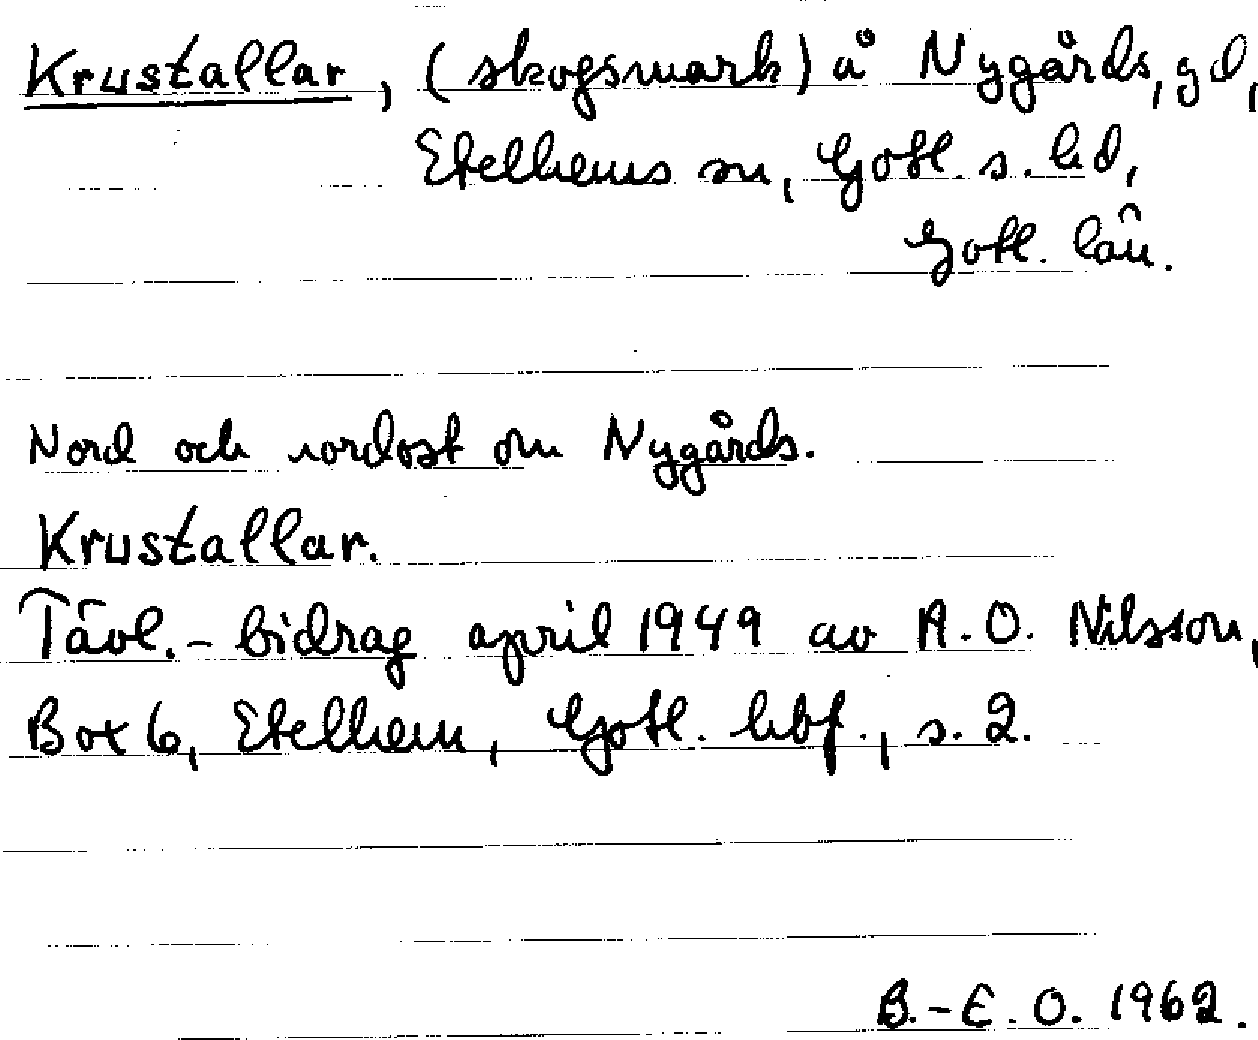 Krustallar, (skogsmark) å Nygårds, gd,
Etelhems sn, Gotl. s. hd,
Gotl. län.
Nord och nordost om Nygårds.
Krustallar.
Tävl.- bidrag april 1949 av A.O. Nilsson,
Box 6, Etelhem, Gotl. hbf., s. 2.
B.-E.O. 1962.